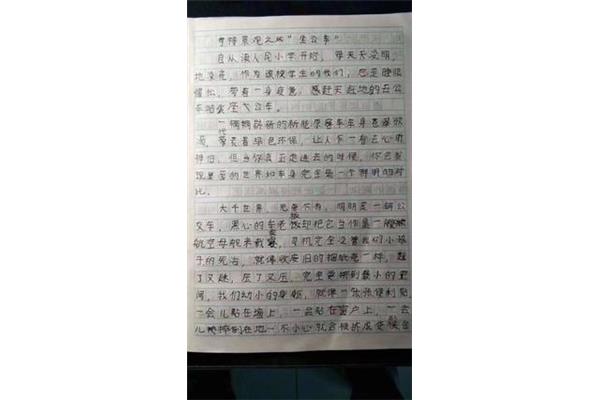 奇特景观之"坐公车"
自从读人民小学开始，每天天没明，
地没亮，作为该校学生的我们，总是睡眼
惺忪，带着一身疲惫，感赶天赶地的去公
车站坐公车。
一辆辆崭新的新能源客车车身
，带着绿色环保，让人乍一看去心旷
神怡，但当你真正走进去的时候，你会发
现里面的世界和车身完全是一个鲜明的对
比。
大千世界，无奇不有，明明是一辆公
交车，黑心的车老板却把它当作是一艘
航空母舰来载客，司机完全不管我们小孩
子的死活，就像收废旧的捆纸壳一样，
了又，压了又压，完全要挪到最小的空
间，我们幼小的身躯，就像一张张便利贴，
一会儿贴在墙上，一会贴在窗户上，一会
儿掉到在地一不小心就会被挤成变